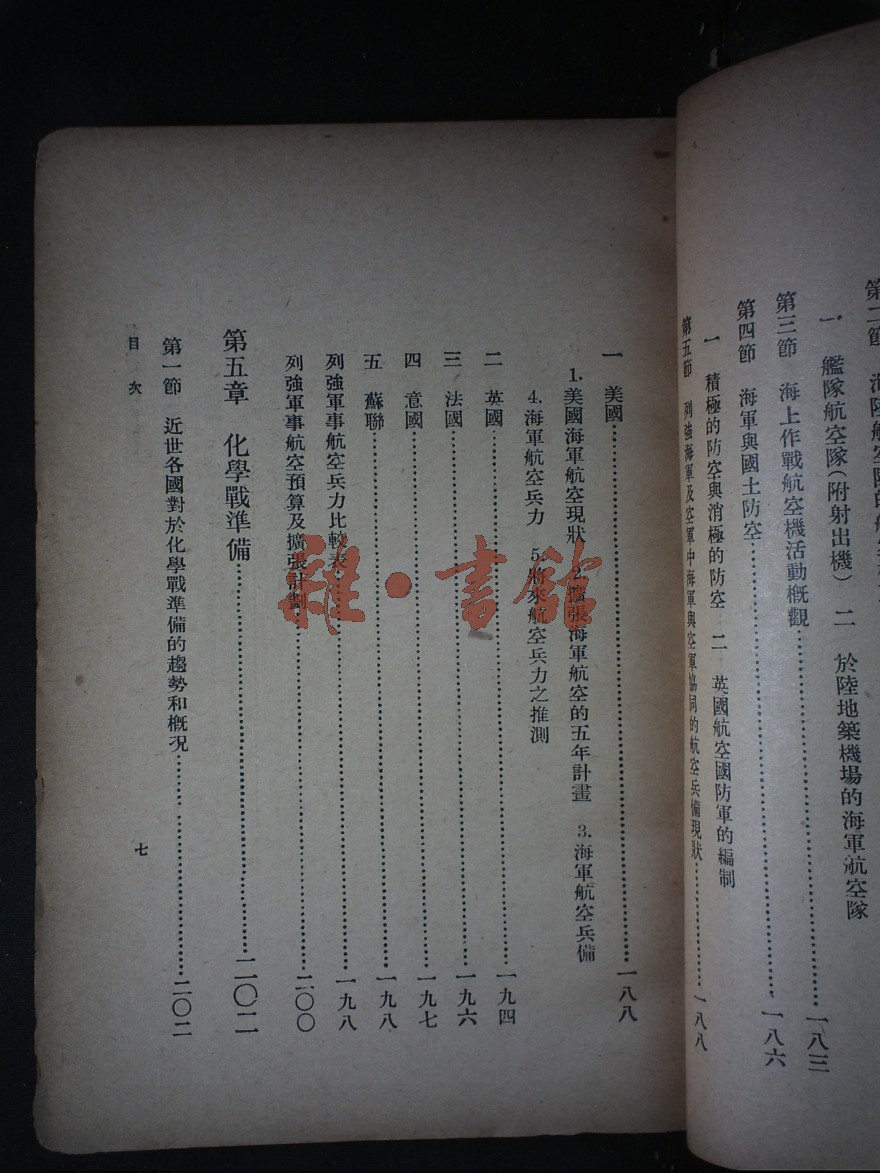 第二節
一 艦隊航空隊(附射出機) 二 於陸地築機場的海軍航空隊
第三節 海上作戰航空機活動概觀……一八三
第四節 海軍與國土防空……一八六
一 積極的防空與消極的防空 二 英國航空國防軍的編制
第五節 列強海軍及空軍中海軍與空軍協同的航空兵備現狀……一八八
一 美國……一八八
1. 美國海軍航空現狀 2. 擴張海軍航空的五年計畫 3. 海軍航空兵備
4. 海軍航空兵力 5. 將來航空兵力之推測
二 英國……一九四
三 法國……一九六
四 意國……一九七
五 蘇聯……一九八
列強軍事航空兵力比較表……一九八
列強軍事航空預算及擴張計劃……二〇〇
第五章 化學戰準備……二〇二
第一節 近世各國對於化學戰準備的趨勢和概況……二〇二
目次
七
雜·書館